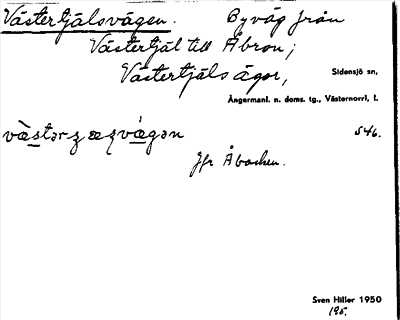 Västertjälsvägen. Byväg från
Västertjäl till Åbron;
Västertjäls ägor, Sidensjö sn,
Ångermanl. n. doms. tg., Västernorrl. l.
546.
Jfr Åbacken.
Sven Hiller 1950
195.